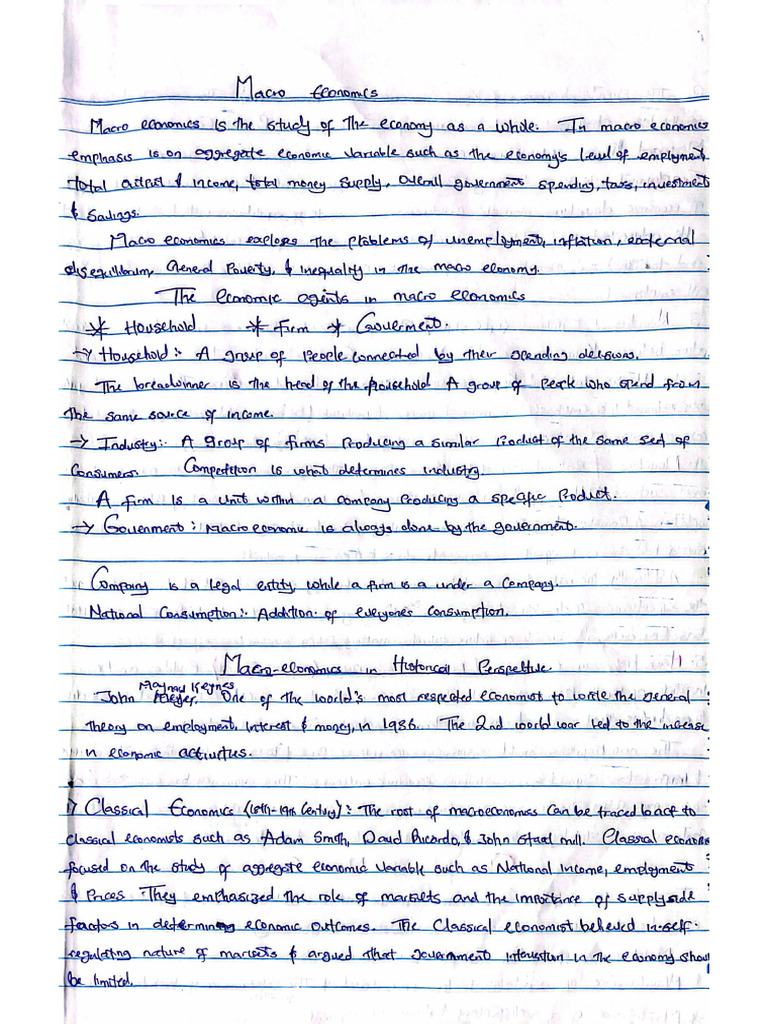 Macro Economics
Macro economics is the study of the economy as a whole. In macro economics
emphasis is on aggregate economic variable such as the economy's level of employment
total output & income, total money supply, overall government spending, taxs, investment
& savings.
Macro economics explores the problems of unemployment, inflation, external
disequilibrum, General Poverty, & inequality in the macro economy.
The economic agents in macro economics
* Household * Firm * Gouverment.
→ Household:- A group of people connected by their spending decisions.
The breadwinner is the head of the household A group of people who spend from
the same source of income.
→ Industry:- A group of firms producing a similar product of the same set of
Consumers. Competition is what determines industry.
A firm is a unit within a company producing a specific product.
→ Gouverment: Macro economic is always done by the government.
Company is a legal entity, while a firm is a under a company.
National Consumption:- Addition of everyone's consumption.
Macro-economics in Historical Perspective.
Maynad Keynes
John One of the world's most respected economist to write the general
theory on employment, interest & money, in 1936. The 2nd world war led to the increase
in economic activities.
1) Classical Economics (18th-19th Century): The root of macroeconomics can be traced back to
classical economists such as Adam Smith, David Ricardo, & John Stuat mill. Classical economi
focused on the study of aggregate economic variable such as National income, employment
& Prices. They emphasized the role of markets and the importance of supply side
factors in determining economic outcomes. The Classical economist believed in self-
regulating nature of markets & argued that government intervention in the economy shou
be limited.